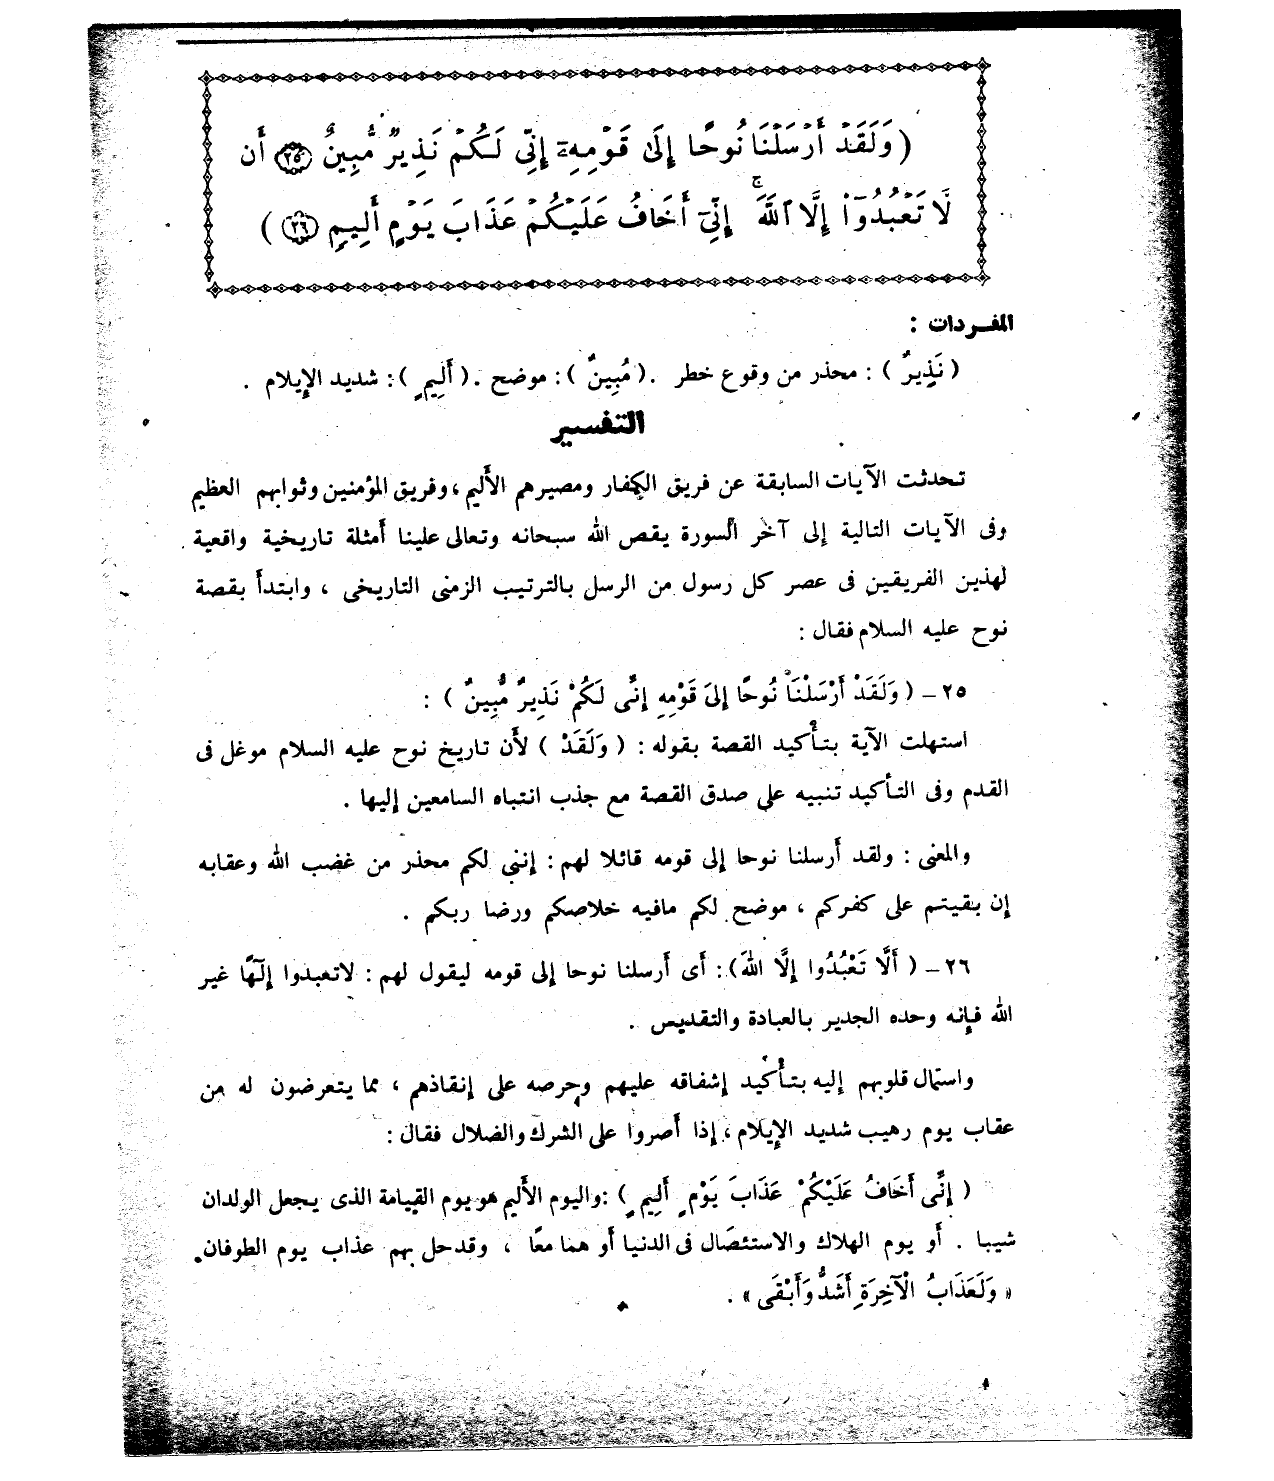 (وَلَقَدْ أَرْسَلْنَا نُوحًا إِلَىٰ قَوْمِهِۦٓ إِنِّى لَكُمْ نَذِيرٌ مُّبِينٌ ٢٥ أَن
لَّا تَعْبُدُوٓا۟ إِلَّا ٱللَّهَ ۖ إِنِّىٓ أَخَافُ عَلَيْكُمْ عَذَابَ يَوْمٍ أَلِيمٍ ٢٦)
المفـردات :
( نَذِيرٌ ) : محذر من وقوع خطر . ( مُبِينٌ ) : موضح . ( أَلِيمٍ ) : شديد الإيلام .
التفسير
تحدثت الآيات السابقة عن فريق الكفار ومصيرهم الأليم ، وفريق المؤمنين وثوابهم العظيم
وفى الآيات التالية إلى آخر السورة يقص الله سبحانه وتعالى علينا أمثلة تاريخية واقعية
لهذين الفريقين فى عصر كل رسول من الرسل بالترتيب الزمنى التاريخى ، وابتدأ بقصة
نوح عليه السلام فقال :
٢٥ – ( وَلَقَدْ أَرْسَلْنَا نُوحًا إِلىَ قَوْمِهِ إِنِّى لَكُمْ نَذِيرٌ مُّبِينٌ ) :
استهلت الآية بتأكيد القصة بقوله : ( وَلَقَدْ ) لأن تاريخ نوح عليه السلام موغل فى
القدم وفى التأكيد تنبيه على صدق القصة مع جذب انتباه السامعين إليها .
والمعنى : ولقد أرسلنا نوحا إلى قومه قائلا لهم : إننى لكم محذر من غضب الله وعقابه
إن بقيتم على كفركم ، موضح لكم مافيه خلاصكم ورضا ربكم .
٢٦ – ( أَلَّا تَعْبُدُوا إِلَّا اللهَ) : أى أرسلنا نوحا إلى قومه ليقول لهم : لاتعبدوا إلَهًا غير
الله فإنه وحده الجدير بالعبادة والتقديس .
واستمال قلوبهم إليه بتأكيد إشفاقه عليهم وحرصه على إنقاذهم ، مما يتعرضون له من
عقاب يوم رهيب شديد الإيلام ، إذا أصروا على الشرك والضلال فقال :
( إِنِّى أَخَافُ عَلَيْكُمْ عَذَابَ يَوْمٍ أَلِيمٍ ) : واليوم الأليم هو يوم القيامة الذى يجعل الولدان
شيبا . أو يوم الهلاك والاستئصال فى الدنيا أو هما معًا ، وقد حل بهم عذاب يوم الطوفان.
« وَلَعَذَابُ الْآخِرَةِ أَشَدُّ وَأَبْقَى » .